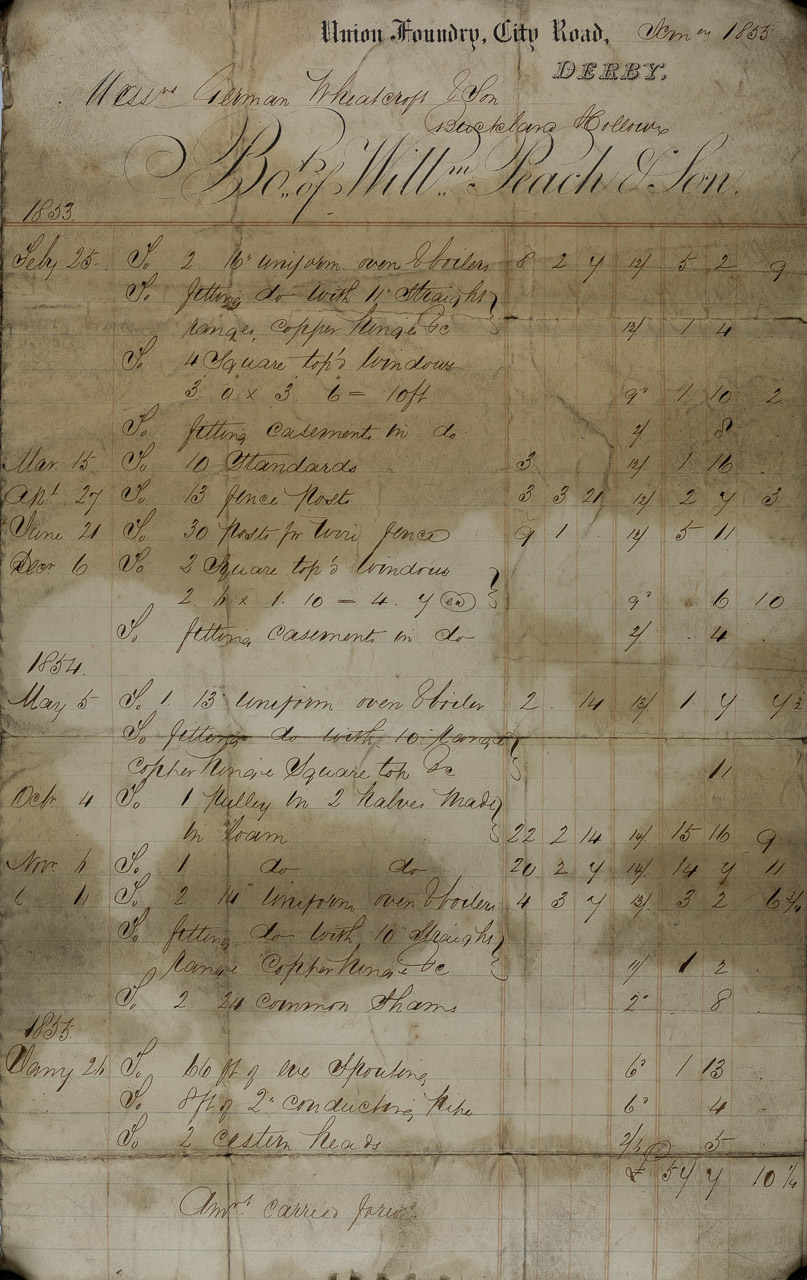 Union Foundry, City Road, 1855
DERBY.
Messrs German Wheatcroft & Son
Buckland Hollow
Bot. of Willm. Peach & Son.
1853
Feby 25. To 2 16" uniform oven & boilers 8 2 7 12/ 5 2 9
To fitting do with 11" Straight
range, copper hinge &c 12/ 1 4
To 4 Square top'd windows
3 0 x 3 6 = 10ft 9d 1 10 2
To fitting casements in do 2/ 8
Mar 15 To 10 Standards 3 12/ 1 16
Apl 27 To 13 fence Posts 3 3 21 12/ 2 7 3
June 21 To 30 Posts for wire fence 9 1 12/ 5 11
Decr 6 To 2 Square top'd windows
2. 6 x 1. 10 = 4. 7 ea 9d 6 10
To fitting casements in do 2/ 4
1854.
May 5 To 1 13" uniform oven & boiler 2 14 13/ 1 7 7½
To fitting do with 10 Range
copper hinge Square top &c 11
Octr 4 To 1 Pulley in 2 halves made
in loam 22 2 14 14/ 15 16 9
Novr 6 To 1 do do 20 2 7 14/ 14 7 11
11 To 2 14" uniform oven & boilers 4 3 7 13/ 3 2 6¾
To fitting do with 10" Straight
range copper hinge &c 11/ 1 2
To 2 24 common Shams 2d 8
1855.
Jany 26 To 66 ft of eve Spouting 6d 1 13
To 8ft of 2" conducting Pipe 6d 4
To 2 cestern heads 2/6 5
£ 57 7 10¼
Amot carried forwd